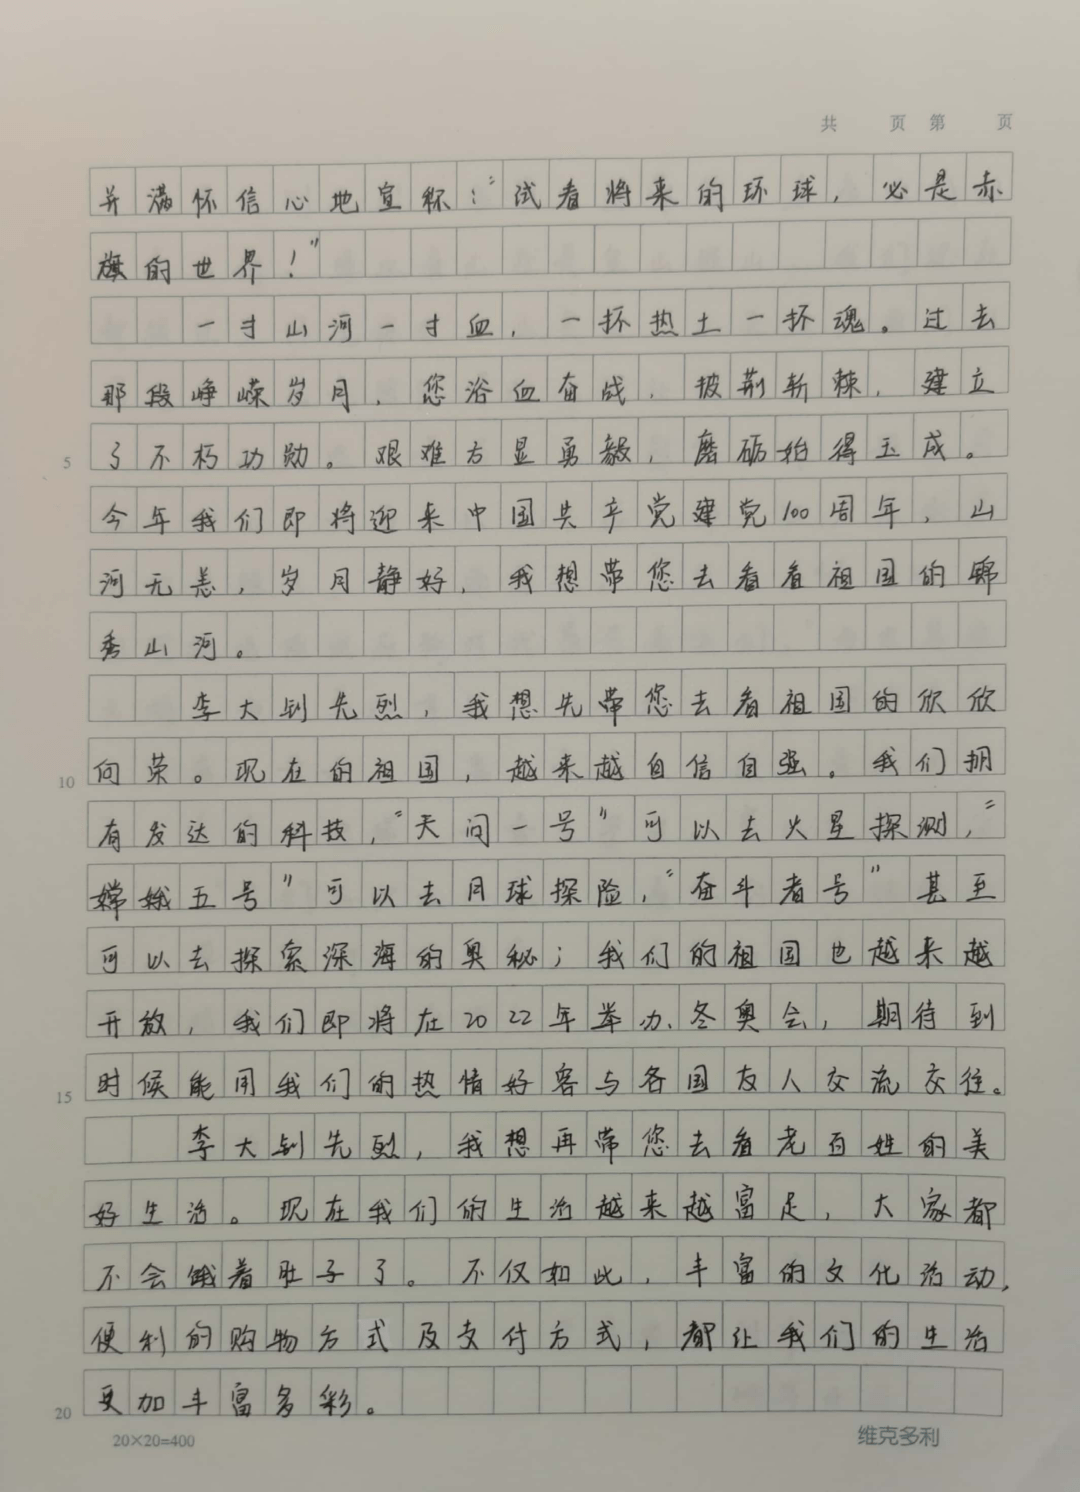 共 页 第 页
并满怀信心地宣称：“试看将来的环球，必是赤
旗的世界！”
一寸山河一寸血，一抔热土一抔魂。过去
那段峥嵘岁月，您浴血奋战，披荆斩棘，建立
5 了不朽功勋。艰难方显勇毅，磨砺始得玉成。
今年我们即将迎来中国共产党建党100周年，山
河无恙，岁月静好，我想带您去看看祖国的锦
秀山河。
李大钊先烈，我想先带您去看祖国的欣欣
10 向荣。现在的祖国，越来越自信自强。我们拥
有发达的科技，“天问一号”可以去火星探测，“
嫦娥五号”可以去月球探险，“奋斗者号”甚至
可以去探索深海的奥秘；我们的祖国也越来越
开放，我们即将在2022年举办冬奥会，期待到
15 时候能用我们的热情好客与各国友人交流交往。
李大钊先烈，我想再带您去看老百姓的美
好生活。现在我们的生活越来越富足，大家都
不会饿着肚子了。不仅如此，丰富的文化活动，
便利的购物方式及支付方式，都让我们的生活
20 更加丰富多彩。
20×20=400 维克多利